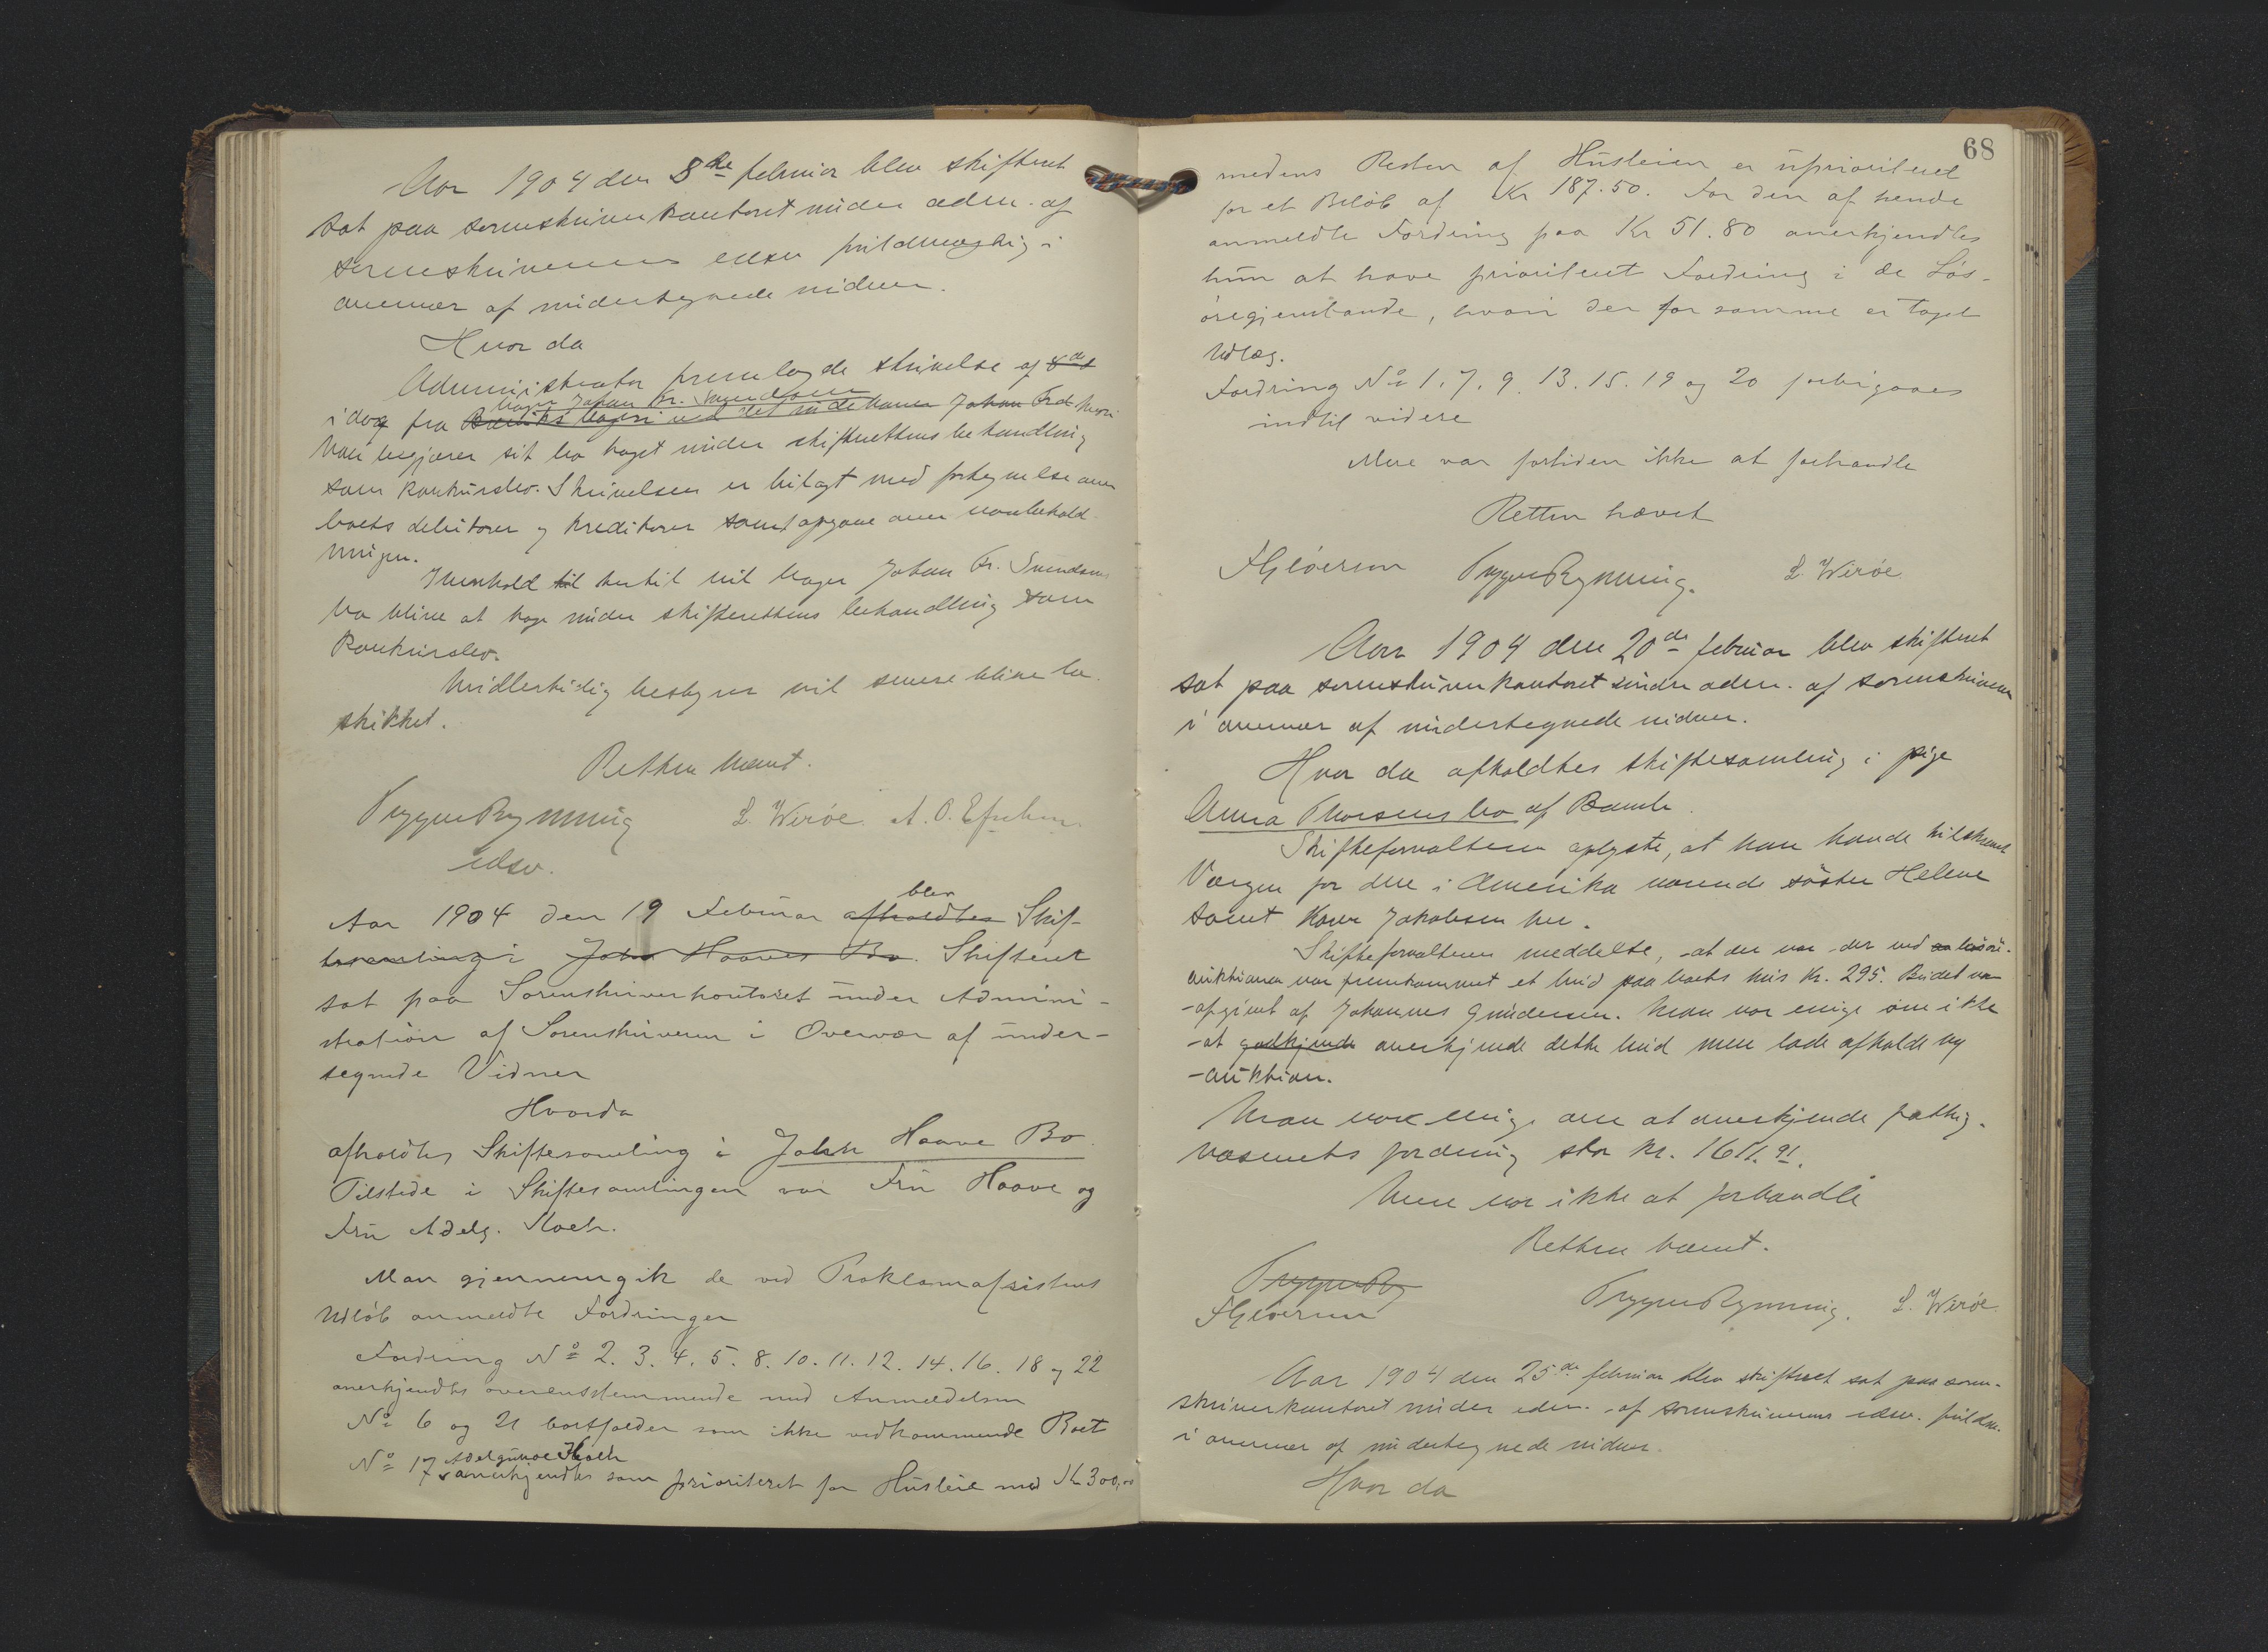 Aar 1904 den 8de februar blev skifteret
sat paa sorenskriverkontoret under adm. af
sorenskriverens edsv fuldmægtig i
overvær af undertegnede vidner.
Hvor da
Administrator fremlagde skrivelse af 8de
bager Johan Fr. Svendsen
i dag fra ved det Johan Fred hvori
han begjærer sit bo taget under skifterettens behandling
som konkursbo. Skrivelsen er bilagt med fortegnelse over
boets debitorer og kreditorer samt opgave over varebehold-
ningen.
I henhold til hertil vil bager Johan Fr. Svendsens
bo blive at tage under skifterettens behandling som
konkursbo.
Midlertidig bestyrer vil senere blive be-
skikket.
Retten hævet.
Trygve Rynning L. Werøe. A. O.
edsv.
blev
Aar 1904 den 19 Februar afholdtes Skif-
tesamling i John Haaves Bo. Skifteret
sat paa Sorenskriverkontoret under Admini-
stration af Sorenskriveren i Overvær af under-
tegnede Vidner
Hvorda
afholdtes Skiftesamling i John Haave Bo.
Tilstede i Skiftesamlingen var Fru Haave og
Fru Adelg. Koch.
Man gjennemgik de ved Proklamafristens
Udløb anmeldte Fordringer
Fordring No 2. 3. 4. 5. 8. 10. 11. 12. 14. 16. 18 og 22
anerkjendtes overensstemmende med Anmeldelsen
No 6 og 21 bortfalder som ikke vedkommende Boet
Adelgunde Koch
No 17 anerkjendtes som prioriteret for Husleie med Kr 300,00
68
medens Resten af Husleien er uprioriteret
for et Beløb af Kr 187.50. For den af hende
anmeldte Fordring paa Kr 51.80 anerkjendtes
hun at have prioriteret Fordring i de Løs-
øregjenstande, hvori der for samme er taget
Udlæg.
Fordring No 1. 7. 9. 13. 15. 19 og 20 forbigaaes
indtil videre
Mere var fortiden ikke at forhandle
Retten hævet
Trygve Rynning. L. Werøe
Aar 1904 den 20de februar blev skifteret
sat paa sorenskriverkontoret under adm. af sorenskriveren
i overvær af undertegnede vidner.
Hvor da afholdtes skiftesamling i pige
Anna Thorsens bo af Bamle.
Skifteforvalteren oplyste, at han havde tilskrevet
Værgen for den i Amerika værende søster Helene
samt Karen Jakobsen her.
Skifteforvalteren meddelte, at der var der ved løsøre-
auktionen var fremkommet et bud paa boets hus Kr. 295. Budet var
afgivet af Johannes Gundersen. Man var enige om ikke
at godkjende anerkjende dette bud men lade afholde ny
auktion.
Man var enige om at anerkjende fattig-
væsenets fordring stor Kr. 1611.91.
Mere var ikke at forhandle
Retten hævet.
Trygve Ry
Trygve Rynning. L. Werøe
Aar 1904 den 25de februar blev skifteret sat paa soren-
skriverkontoret under adm. af sorenskriverens edsv. fuldm.
i overvær af undertegnede vidner.
Hvor da